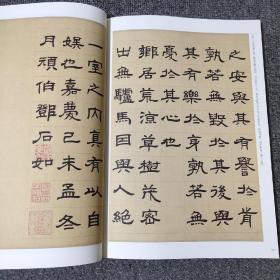 之安與其有譽於前
孰若無毀於其後與
其有樂於身孰若無
憂於其心
鄉居荒涼草樹茂密
出無驢馬因與人絕
一室之内真有以自
娛也嘉慶己未孟冬
月頑伯鄧石如